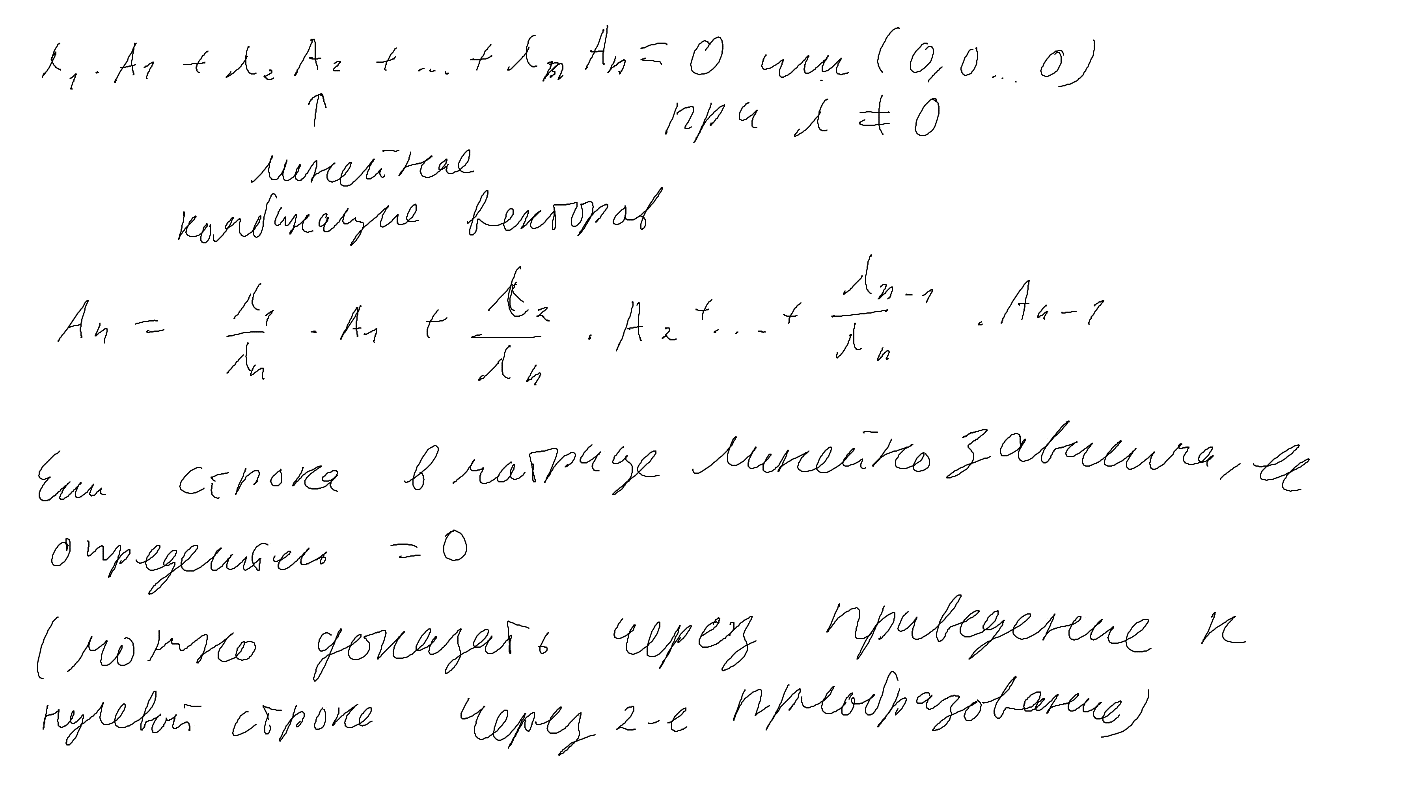 λ₁ · A₁ + λ₂ A₂ + ... + λₙ Aₙ = 0 или (0, 0 ... 0)
↑ при λ ≠ 0
линейная
комбинация векторов
Aₙ = λ₁/λₙ · A₁ + λ₂/λₙ · A₂ + ... + λₙ₋₁/λₙ · Aₙ₋₁
Если строка в матрице линейно зависима, её
определитель = 0
(можно доказать через приведение к
нулевой строке через 2-е преобразование)